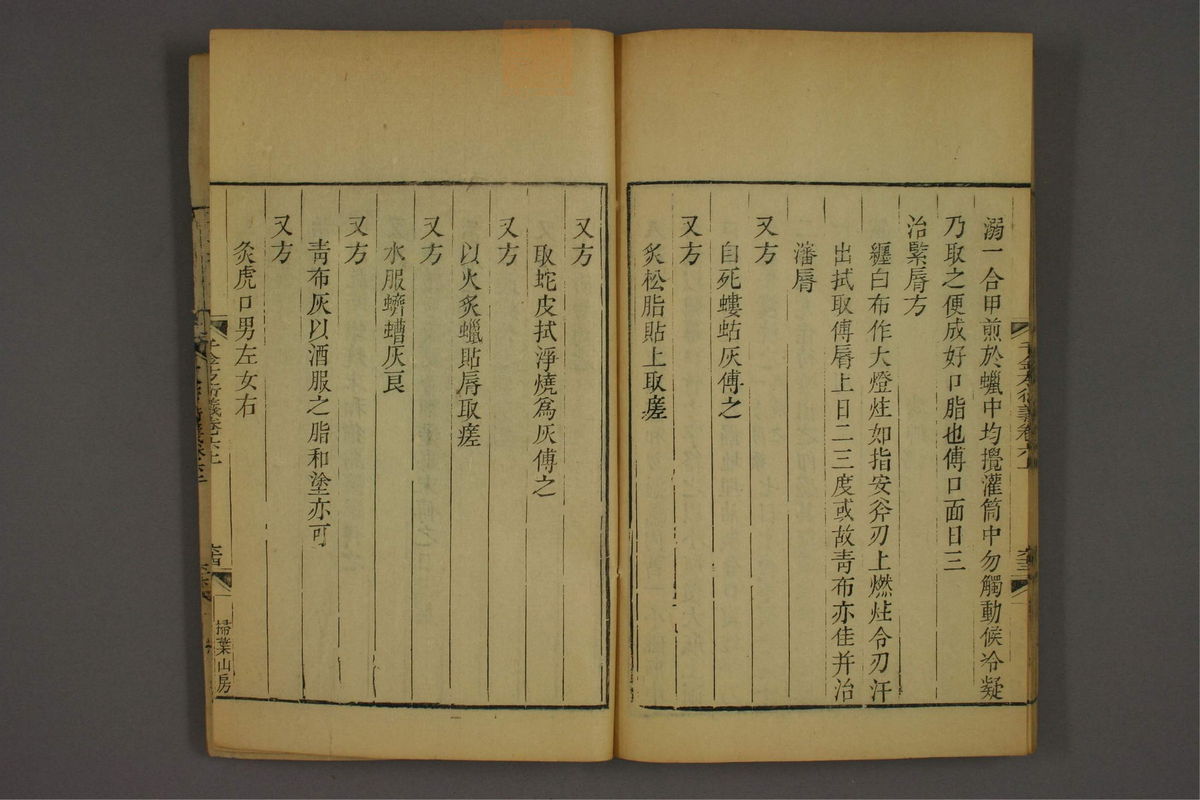 溺一合甲煎於蠟中均攪灌筒中勿觸動候冷凝
乃取之便成好口脂也傅口面日三
治緊脣方
纏白布作大燈炷如指安斧刃上燃炷令刃汗
出拭取傅脣上日二三度或故靑布亦佳并治
瀋脣
又方
自死螻蛄灰傅之
又方
炙松脂貼上取瘥
又方
取蛇皮拭淨燒爲灰傅之
又方
以火炙蠟貼脣取瘥
又方
水服蠐螬灰良
又方
靑布灰以酒服之脂和塗亦可
又方
灸虎口男左女右
千金方衍義卷六上
掃葉山房